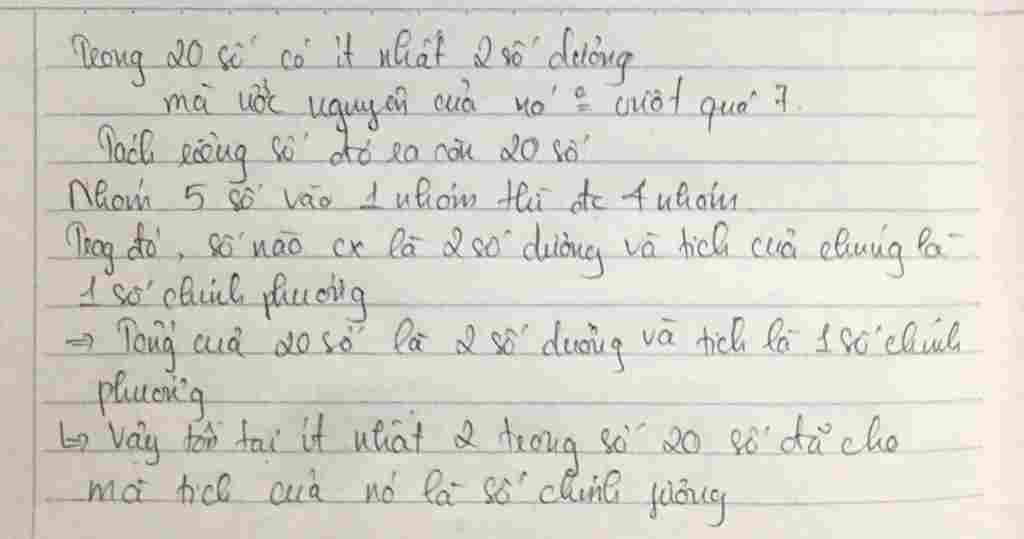 Trong 20 số có ít nhất 2 số dương
mà ước nguyên của nó º vượt quá 7.
Tách riêng số đó ra còn 20 số
Nhóm 5 số vào 1 nhóm thì đc 4 nhóm
Trog đó, số nào cx là 2 số dương và tích của chúng là
1 số chính phương
⇒ Tổng của 20 số là 2 số dương và tích là 1 số chính
phương
↳ Vậy tồn tại ít nhất 2 trong số 20 số đã cho
mà tích của nó là số chính